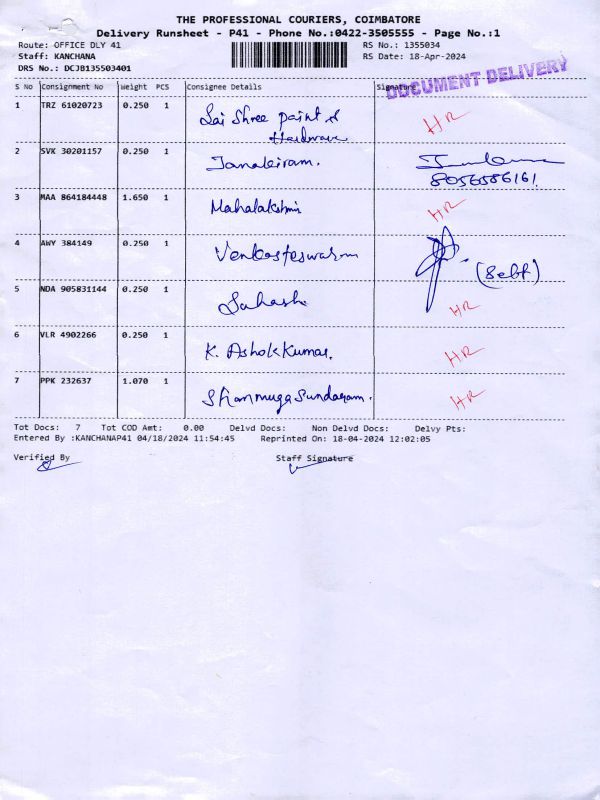 THE PROFESSIONAL COURIERS, COIMBATORE
Delivery Runsheet - P41 - Phone No.:0422-3505555 - Page No.:1
Route: OFFICE DLY 41 RS No.: 1355034
Staff: KANCHANA RS Date: 18-Apr-2024
DRS No.: DCJB135503401
DOCUMENT DELIVERY
S No Consignment No Weight PCS Consignee Details Signature
1 TRZ 61020723 0.250 1 Sai Shree paint & HR
Hardware
2 SVK 30201157 0.250 1 Janakiram.
8056586161.
3 MAA 864184448 1.650 1 Mahalakshmi HR
4 AWY 384149 0.250 1 Venkasteswaran
(Self)
5 NDA 905831144 0.250 1 HR
6 VLR 4902266 0.250 1 K. Ashok Kumar. HR
7 PPK 232637 1.070 1 Shanmuga Sundaram. HR
Tot Docs: 7 Tot COD Amt: 0.00 Delvd Docs: Non Delvd Docs: Delvy Pts:
Entered By :KANCHANAP41 04/18/2024 11:54:45 Reprinted On: 18-04-2024 12:02:05
Verified By Staff Signature